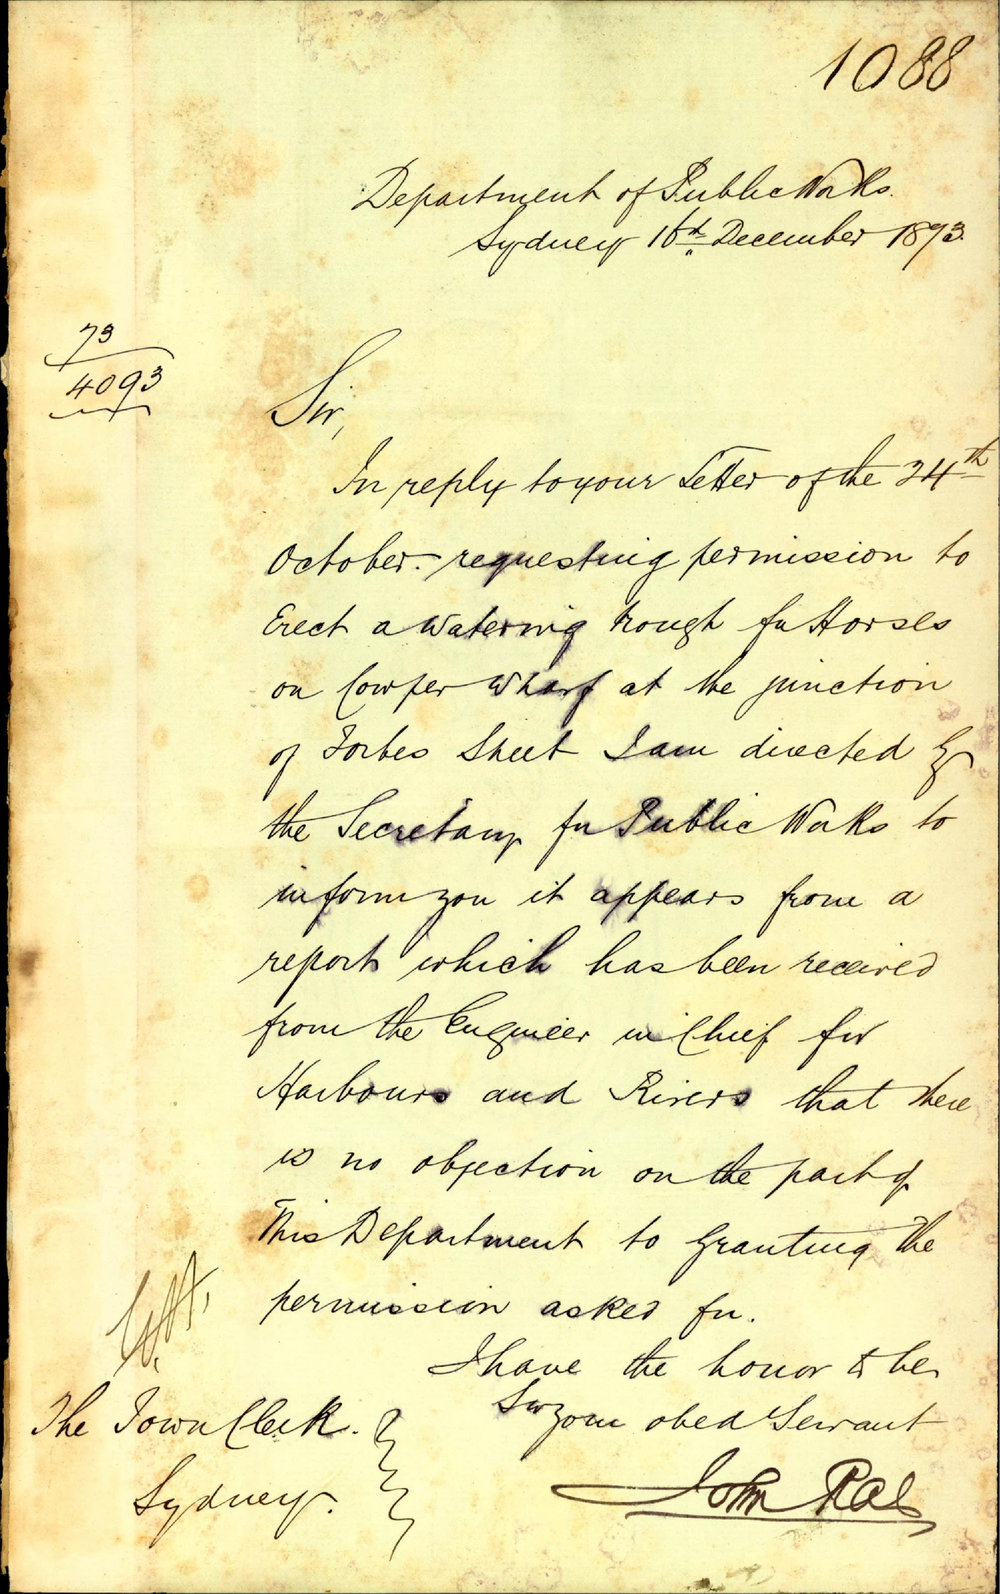 1088
Department of Public Works.
Sydney 16th December 1873.
73
4093
Sir,
In reply to your Letter of the 24th
October. requesting permission to
Erect a watering trough for Horses
on Cowper Wharf at the junction
of Forbes Street I am directed by
the Secretary for Public Works to
inform you it appears from a
report which has been received
from the Engineer in Chief for
Harbours and Rivers that there
is no objection on the part of
This Department to Granting the
permission asked for.
I have the honor to be
Sir your obed Servant
John Rae
The Town Clerk.
Sydney.